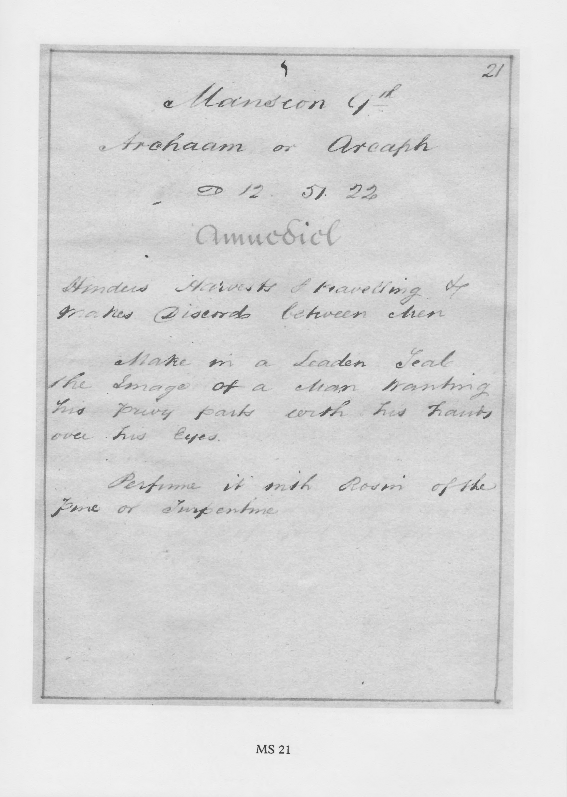 21
Mansion 9th
Archaam or Arcaph
12 51 22
Amnediel
Hinders Harvests & travelling &
makes Discords between Men
Make in a Leaden Seal
the Image of a Man Wanting
his privy parts with his hands
over his Eyes.
Perfume it with Rosin of the
pine or Turpentine
MS 21